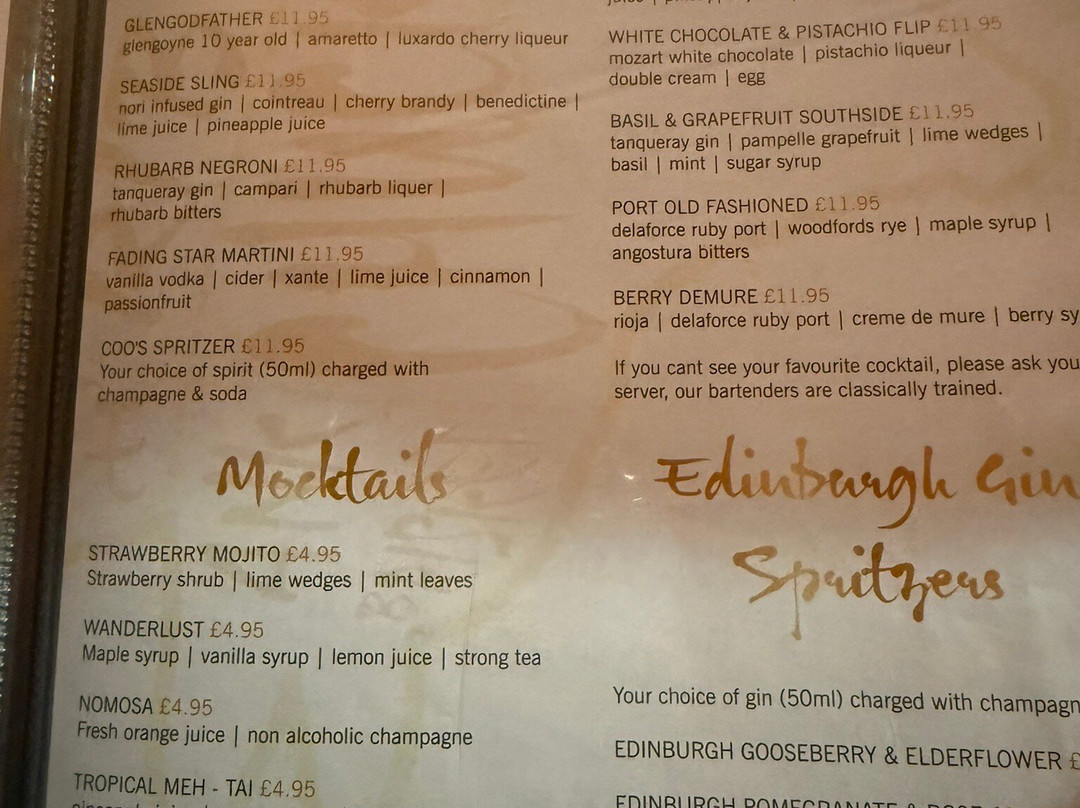 GLENGODFATHER £11.95
glengoyne 10 year old | amaretto | luxardo cherry liqueur
SEASIDE SLING £11.95
nori infused gin | cointreau | cherry brandy | benedictine |
lime juice | pineapple juice
RHUBARB NEGRONI £11.95
tanqueray gin | campari | rhubarb liquer |
rhubarb bitters
FADING STAR MARTINI £11.95
vanilla vodka | cider | xante | lime juice | cinnamon |
passionfruit
COO'S SPRITZER £11.95
Your choice of spirit (50ml) charged with
champagne & soda
Mocktails
STRAWBERRY MOJITO £4.95
Strawberry shrub | lime wedges | mint leaves
WANDERLUST £4.95
Maple syrup | vanilla syrup | lemon juice | strong tea
NOMOSA £4.95
Fresh orange juice | non alcoholic champagne
TROPICAL MEH - TAI £4.95
WHITE CHOCOLATE & PISTACHIO FLIP £11.95
mozart white chocolate | pistachio liqueur |
double cream | egg
BASIL & GRAPEFRUIT SOUTHSIDE £11.95
tanqueray gin | pampelle grapefruit | lime wedges |
basil | mint | sugar syrup
PORT OLD FASHIONED £11.95
delaforce ruby port | woodfords rye | maple syrup |
angostura bitters
BERRY DEMURE £11.95
rioja | delaforce ruby port | creme de mure | berry sy
If you cant see your favourite cocktail, please ask you
server, our bartenders are classically trained.
Edinburgh Gin
Spritzers
Your choice of gin (50ml) charged with champagn
EDINBURGH GOOSEBERRY & ELDERFLOWER £
EDINBURGH POMEGRANATE &